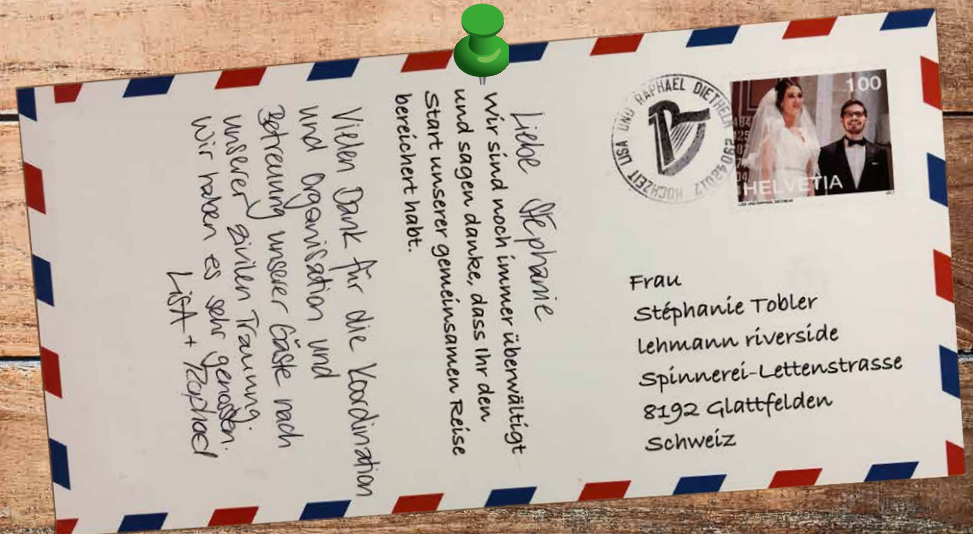 Liebe Stephanie
Wir sind noch immer überwältigt
und sagen danke, dass Ihr den
Start unserer gemeinsamen Reise
bereichert habt.
Vielen Dank für die Koordination
und Organisation und
Betreuung unserer Gäste nach
unserer zivilen Trauung.
Wir haben es sehr genossen.
LISA + Raphael
HOCHZEIT LISA UND RAPHAEL DIETHELM 29042017
100
HELVETIA
Frau
Stéphanie Tobler
lehmann riverside
Spinnerei-Lettenstrasse
8192 Glattfelden
Schweiz